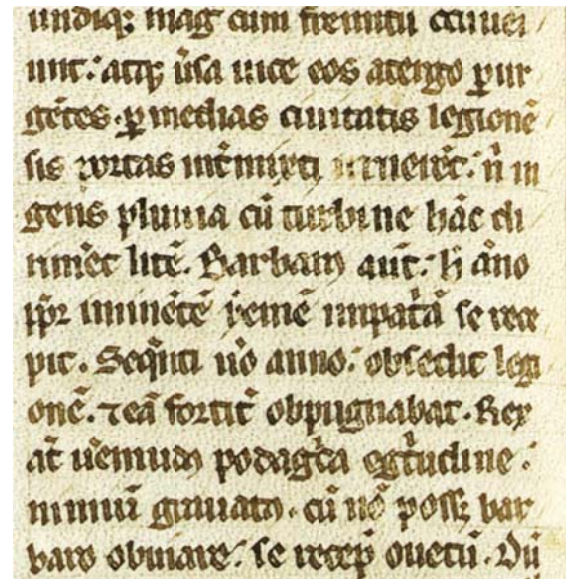 undiq; mag cum fremitu
unt: atq; ūsa uice eos atergo ꝑur
gētes. ꝑ medias ciuitatis legionē
sis portas int̄mixti irruerēt: n̄ in
gens pluuia cū turbine hāc di
rimēt litē. Barbarꝰ aut̄: h̄ āno
iminētē yemē se rece
pit. Seqͥnti ūo anno: obsedit legi
onē. ⁊ eā fortit̄ obpugnabat. Rex
at̄ uemudꝰ podagͥca egͥtudine:
nimiū grauatꝰ. cū nō poss; bar
baro obuiare: se recep̄ ouetū. Dū